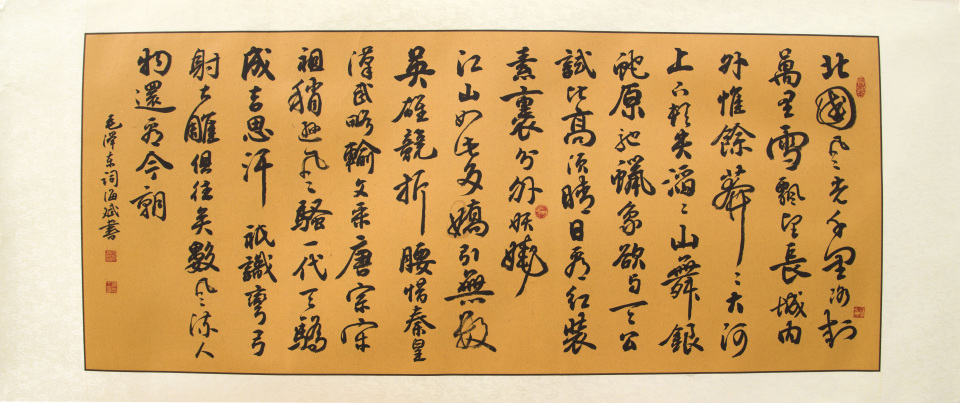 北國風光千里冰封
萬里雪飄望長城内
外惟餘莽〻大河
上下頓失滔〻山舞銀
蛇原馳蠟象欲与天公
試比高須晴日看紅裝
素裹分外妖嬈
江山如此多嬌引無数
英雄競折腰惜秦皇
漢武略輸文采唐宗宋
祖稍遜風騷一代天驕
成吉思汗祇識彎弓
射大雕俱往矣數風流人
物還看今朝
毛澤东词海斌書